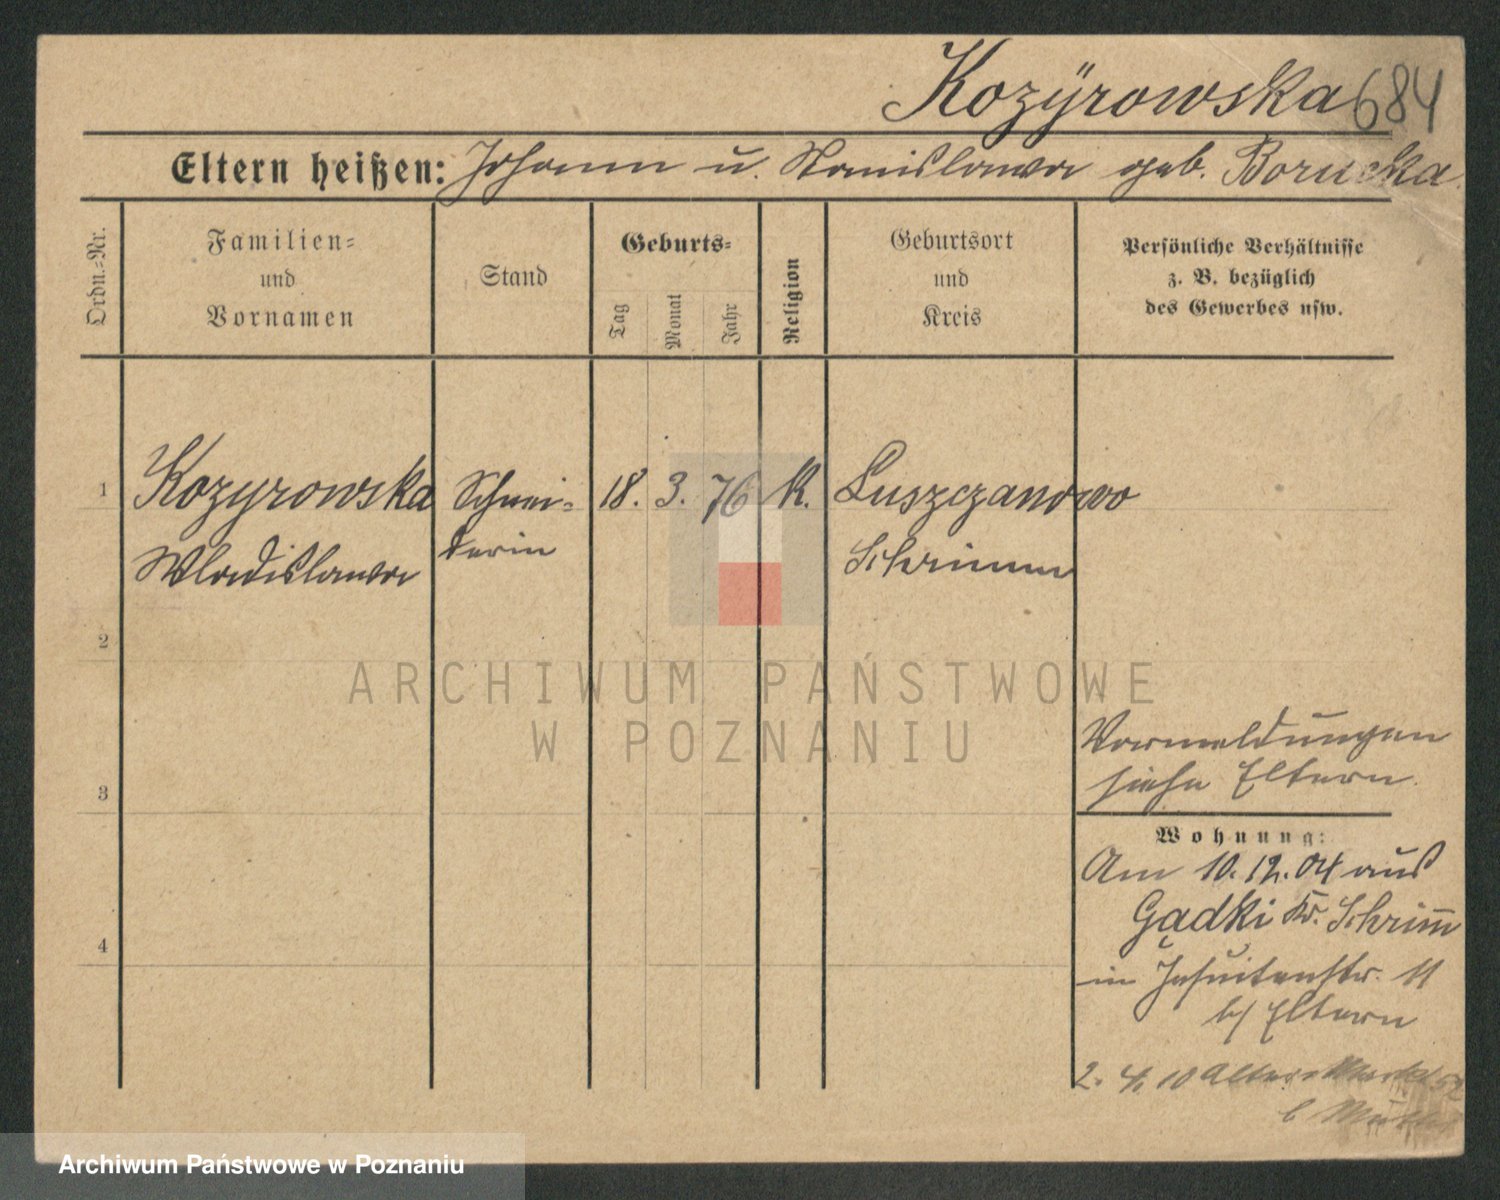 Kozÿrowska 684
Eltern heißen: Johann u. Stanislawa geb. Borucka.
Ordn.=Nr.
Familien=
und
Vornamen
Stand
Geburts=
Tag
Monat
Jahr
Religion
Geburtsort
und
Kreis
Persönliche Verhältnisse
z. B. bezüglich
des Gewerbes usw.
1 Kozyrowska Schnei= 18. 3. 76 K. Luszczanowo
Wladislawa derin Schrimm
2
3
4
Vormeldungen
siehe Eltern.
Wohnung:
Am 10.12.04 aus
Gądki Kr. Schrimm
in Jesuitenstr. 11
b/ Eltern
2. 4. 10 Alter Markt 52
b Mutter
ARCHIWUM PAŃSTWOWE
W POZNANIU
Archiwum Państwowe w Poznaniu